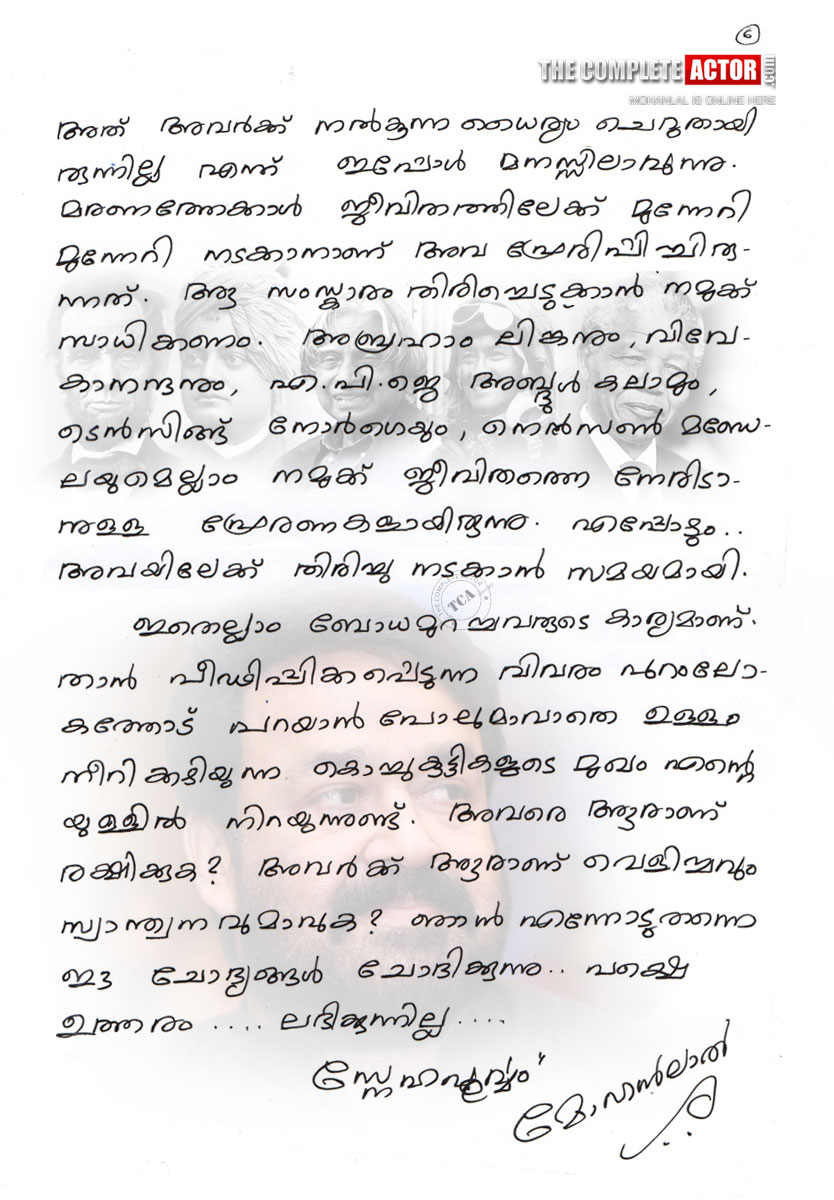 6
THE COMPLETE ACTOR .COM
MOHANLAL IS ONLINE HERE
അത് അവർക്ക് നൽകുന്ന ധൈര്യം ചെറുതായി
രുന്നില്ല എന്ന് ഇപ്പോൾ മനസ്സിലാവുന്നു.
മരണത്തേക്കാൾ ജീവിതത്തിലേക്ക് മുന്നേറി
മുന്നേറി നടക്കാനാണ് അവ പ്രേരിപ്പിച്ചിരു-
ന്നത്. ആ സംസ്കാരം തിരിച്ചെടുക്കാൻ നമുക്ക്
സാധിക്കണം. അബ്രഹാം ലിങ്കനും, വിവേ-
കാനന്ദനും, എ.പി.ജെ അബ്ദുൾ കലാമും,
ടെൻസിങ്ങ് നോർഗെയും, നെൽസൺ മണ്ഡേ-
ലയുമെല്ലാം നമുക്ക് ജീവിതത്തെ നേരിടാ-
നുള്ള പ്രേരണകളായിരുന്നു. എപ്പോഴും..
അവയിലേക്ക് തിരിച്ചു നടക്കാൻ സമയമായി.
THE COMPLETE ACTOR
TCA
ഇതെല്ലാം ബോധമുറച്ചവരുടെ കാര്യമാണ്.
താൻ പീഢിപ്പിക്കപ്പെടുന്ന വിവരം പുറംലോ-
കത്തോട് പറയാൻ പോലുമാവാതെ ഉള്ളം
നീറിക്കഴിയുന്ന കൊച്ചുകുട്ടികളുടെ മുഖം എന്റെ
യുള്ളിൽ നിറയുന്നുണ്ട്. അവരെ ആരാണ്
രക്ഷിക്കുക? അവർക്ക് ആരാണ് വെളിച്ചവും
സ്വാന്ത്വനവുമാവുക? ഞാൻ എന്നോടുതന്നെ
ഈ ചോദ്യങ്ങൾ ചോദിക്കുന്നു.. പക്ഷെ
ഉത്തരം .... ലഭിക്കുന്നില്ല ....
സ്നേഹപൂർവ്വം
മോഹൻലാൽ